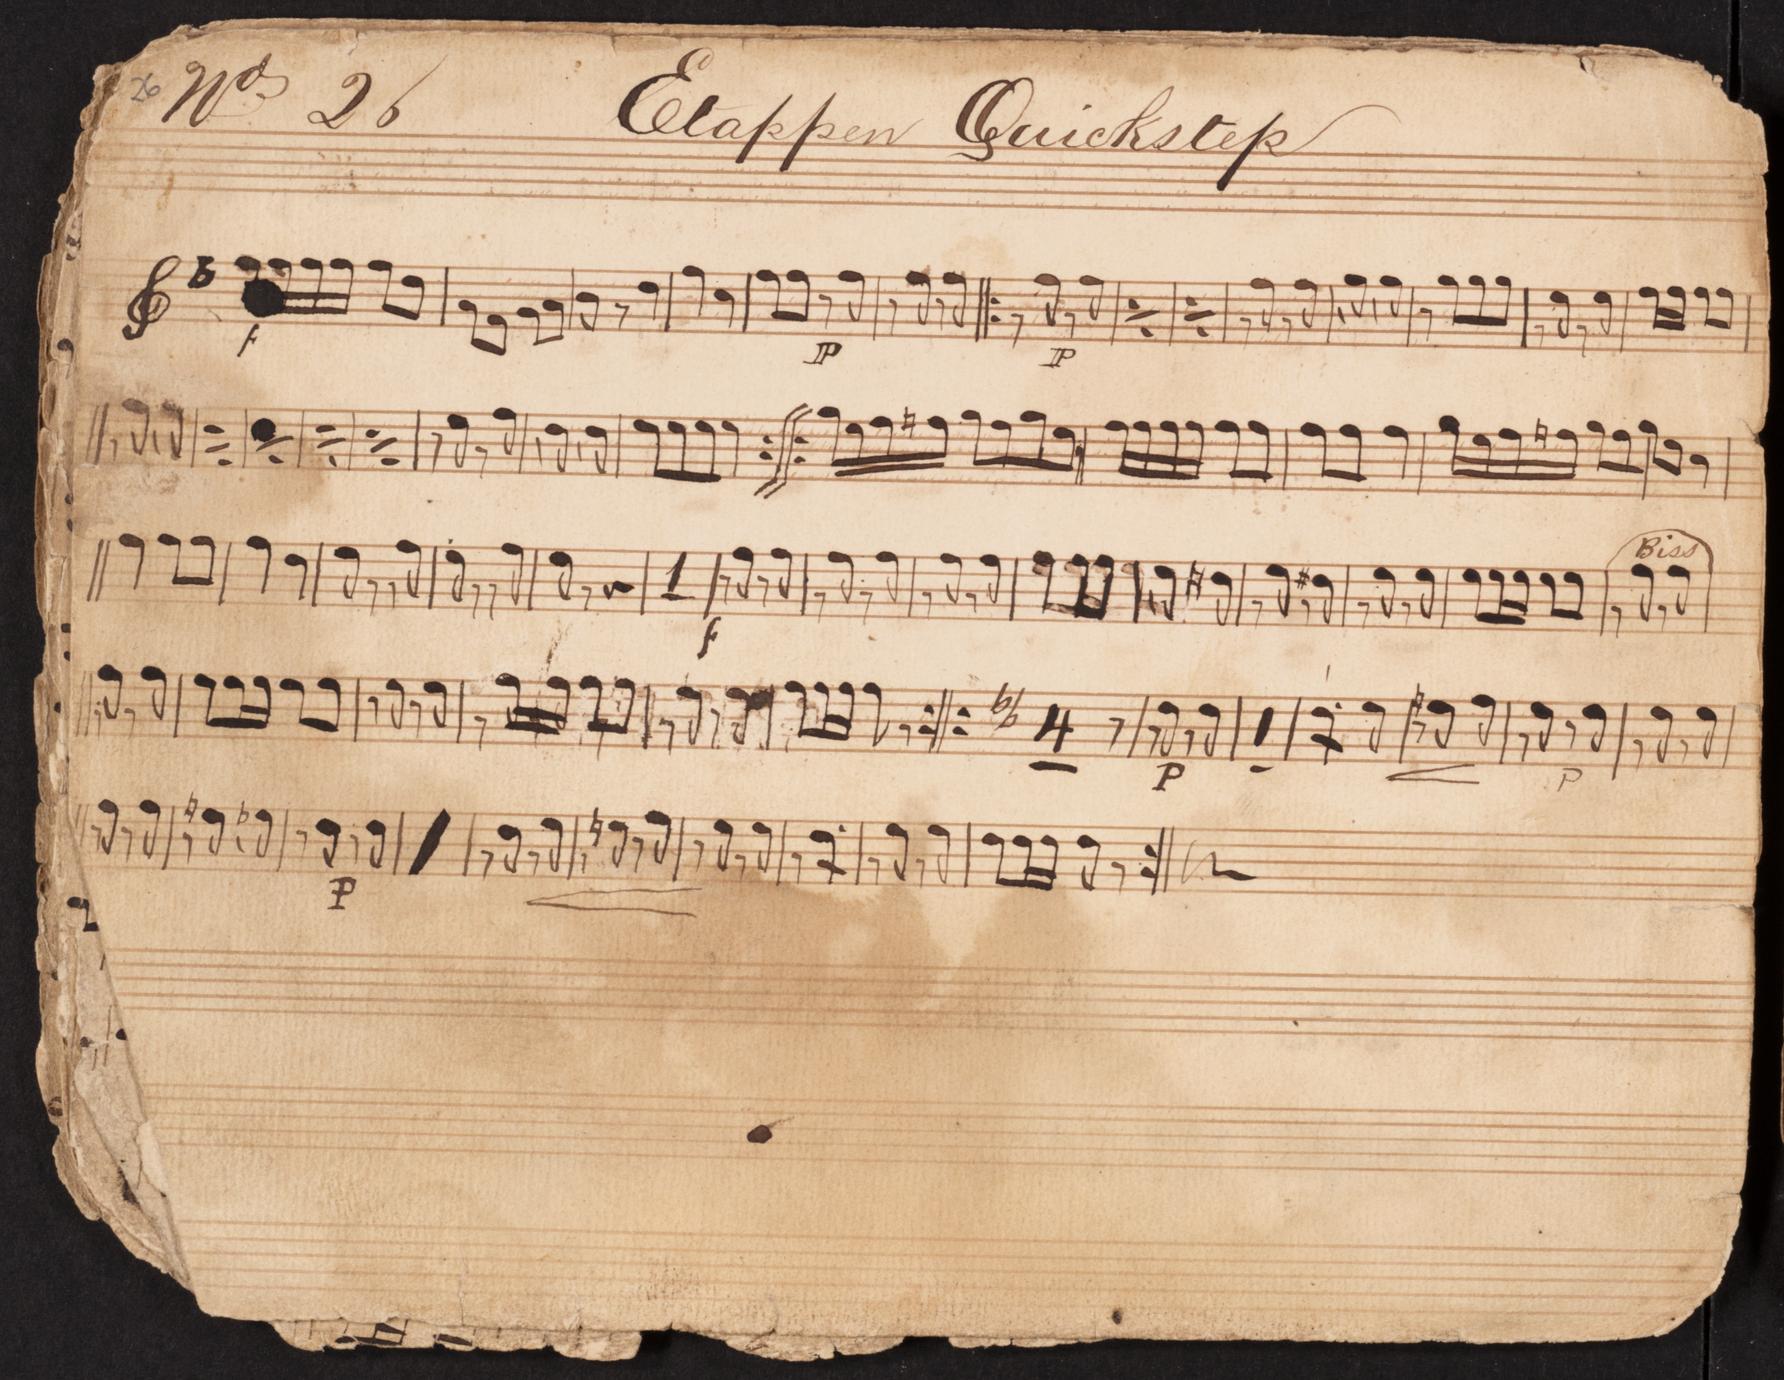 26 No. 26 Etappen Quickstep
f P P
f Biss
4 P P
P